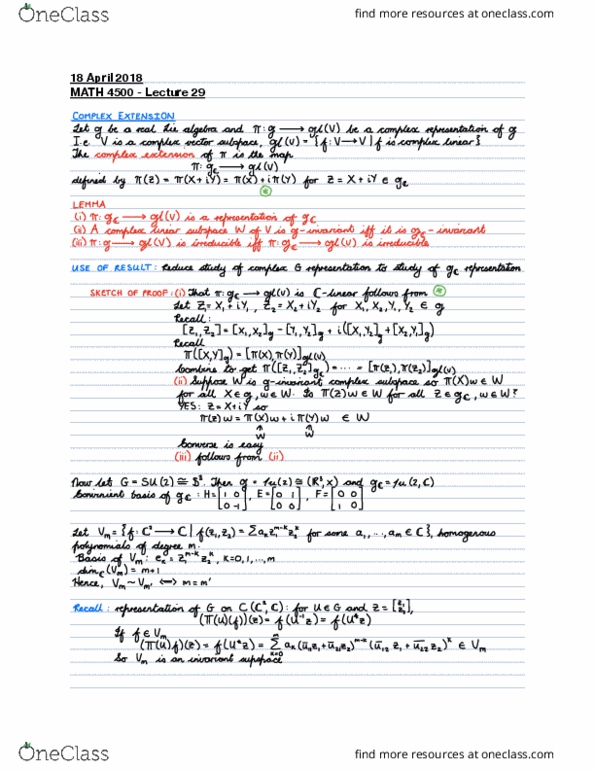 OneClass
find more resources at oneclass.com
18 April 2018
MATH 4500 - Lecture 29
COMPLEX EXTENSION
Let g be a real Lie algebra and π: g ⟶ gl(V) be a complex representation of g
I.e. V is a complex vector subspace, gl(V) = {f: V→V | f is complex linear}
The complex extension of π is the map
π: g_C ⟶ gl(V)
defined by π(Z) = π(X + iY) = π(X) + iπ(Y) for Z = X + iY ∈ g_C
*
LEMMA
(i) π: g_C ⟶ gl(V) is a representation of g_C
(ii) A complex linear subspace W of V is g-invariant iff it is g_C-invariant
(iii) π: g ⟶ gl(V) is irreducible iff π: g_C ⟶ gl(V) is irreducible
USE OF RESULT: Reduce study of complex G representation to study of g_C representation
SKETCH OF PROOF: (i) That π: g_C ⟶ gl(V) is C-linear follows from *
Let Z₁ = X₁ + iY₁, Z₂ = X₂ + iY₂ for X₁, X₂, Y₁, Y₂ ∈ g
Recall:
[Z₁, Z₂] = [X₁, X₂]_g - [Y₁, Y₂]_g + i([X₁, Y₂]_g + [X₂, Y₁]_g)
Recall
π([X, Y]_g) = [π(X), π(Y)]_gl(V)
Combine to get π([Z₁, Z₂]_g_C) = ··· = [π(Z₁), π(Z₂)]_gl(V)
(ii) Suppose W is g-invariant complex subspace so π(X)w ∈ W
for all X ∈ g, w ∈ W. Is π(Z)w ∈ W for all Z ∈ g_C, w ∈ W?
YES: Z = X + iY so
π(Z)w = π(X)w + iπ(Y)w ∈ W
↑ ↑
W W
Converse is easy
(iii) follows from (ii)
Now let G = SU(2) ≅ S³. Then g = su(2) ≅ (R³, x) and g_C = su(2, C)
Convenient basis of g_C: H = [1 0; 0 -1], E = [0 1; 0 0], F = [0 0; 1 0]
Let V_m = {f: C² ⟶ C | f(z₁, z₂) = Σ a_k z₁^(m-k) z₂^k for some a₁, ..., a_m ∈ C}, homogenous
polynomials of degree m.
Basis of V_m: e_k = z₁^(m-k) z₂^k, k = 0, 1, ..., m
dim_C(V_m) = m+1
Hence, V_m ~ V_m' ⟺ m = m'
Recall: representation of G on C(C², C): for U ∈ G and z = [z₁; z₂],
(π(U)(f))(z) = f(U⁻¹z) = f(U*z)
If f ∈ V_m
(π(U)f)(z) = f(U*z) = Σ_{k=0}^m a_k(ū₁₁z₁ + ū₂₁z₂)^(m-k) (ū₁₂z₁ + ū₂₂z₂)^k ∈ V_m
So V_m is an invariant supspace
OneClass
find more resources at oneclass.com